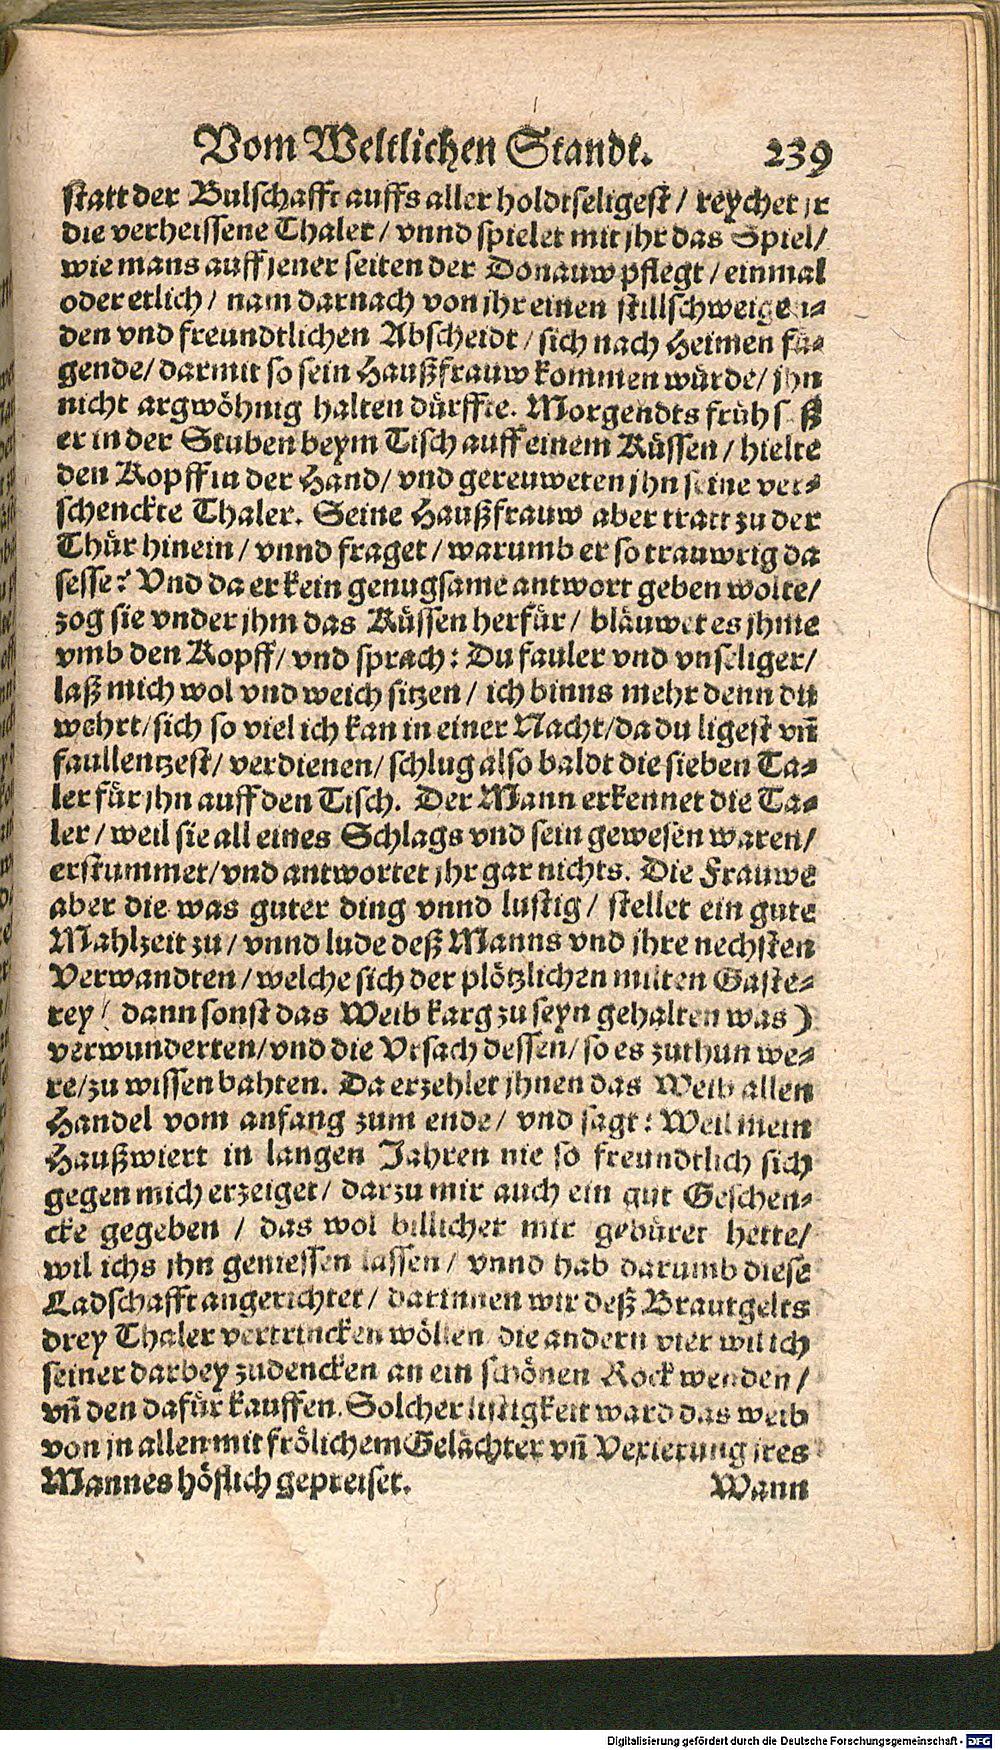 Vom Weltlichen Standt. 239
statt der Bulschafft auffs aller holdtseligest / reychet jr
die verheissene Thaler / vnnd spielet mit jhr das Spiel /
wie mans auff jener seiten der Donauw pflegt / einmal
oder etlich / nam darnach von jhr einen stillschweigen⸗
den vnd freundtlichen Abscheidt / sich nach Heimen fü⸗
gende / darmit so sein Haußfrauw kommen würde / jhn
nicht argwöhnig halten dürffte. Morgendts früh saß
er in der Stuben beym Tisch auff einem Küssen / hielte
den Kopff in der Hand / vnd gereuweten jhn seine ver⸗
schenckte Thaler. Seine Haußfrauw aber tratt zu der
Thür hinein / vnnd fraget / warumb er so trauwrig da
sesse? Vnd da er kein genugsame antwort geben wolte /
zog sie vnder jhm das Küssen herfür / bläuwet es jhme
vmb den Kopff / vnd sprach: Du fauler vnd vnseliger /
laß mich wol vnd weich sitzen / ich binns mehr denn du
wehrt / sich so viel ich kan in einer Nacht / da du ligest vñ
faullentzest / verdienen / schlug also baldt die sieben Ta⸗
ler für jhn auff den Tisch. Der Mann erkennet die Ta⸗
ler / weil sie all eines Schlags vnd sein gewesen waren /
erstummet / vnd antwortet jhr gar nichts. Die Frauwe
aber die was guter ding vnnd lustig / stellet ein gute
Mahlzeit zu / vnnd lude deß Manns vnd ihre nechsten
Verwandten / welche sich der plötzlichen milten Gaste⸗
rey ( dann sonst das Weib karg zu seyn gehalten was )
verwunderten / vnd die Vrsach dessen / so es zuthun we⸗
re / zu wissen bahten. Da erzehlet jhnen das Weib allen
Handel vom anfang zum ende / vnd sagt: Weil mein
Haußwiert in langen Jahren nie so freundtlich sich
gegen mich erzeiget / darzu mir auch ein gut Geschen⸗
cke gegeben / das wol billicher mir gebüret hette /
wil ichs jhn geniessen lassen / vnnd hab darumb diese
Ladschafft angerichtet / darinnen wir deß Brautgelts
drey Thaler vertrincken wöllen / die andern vier wil ich
seiner darbey zudencken an ein schönen Rock wenden /
vñ den dafür kauffen. Solcher listigkeit ward das weib
von jn allen mit frölichem Gelächter vñ Vexierung jres
Mannes höflich gepreiset. Wann
Digitalisierung gefördert durch die Deutsche Forschungsgemeinschaft - DFG